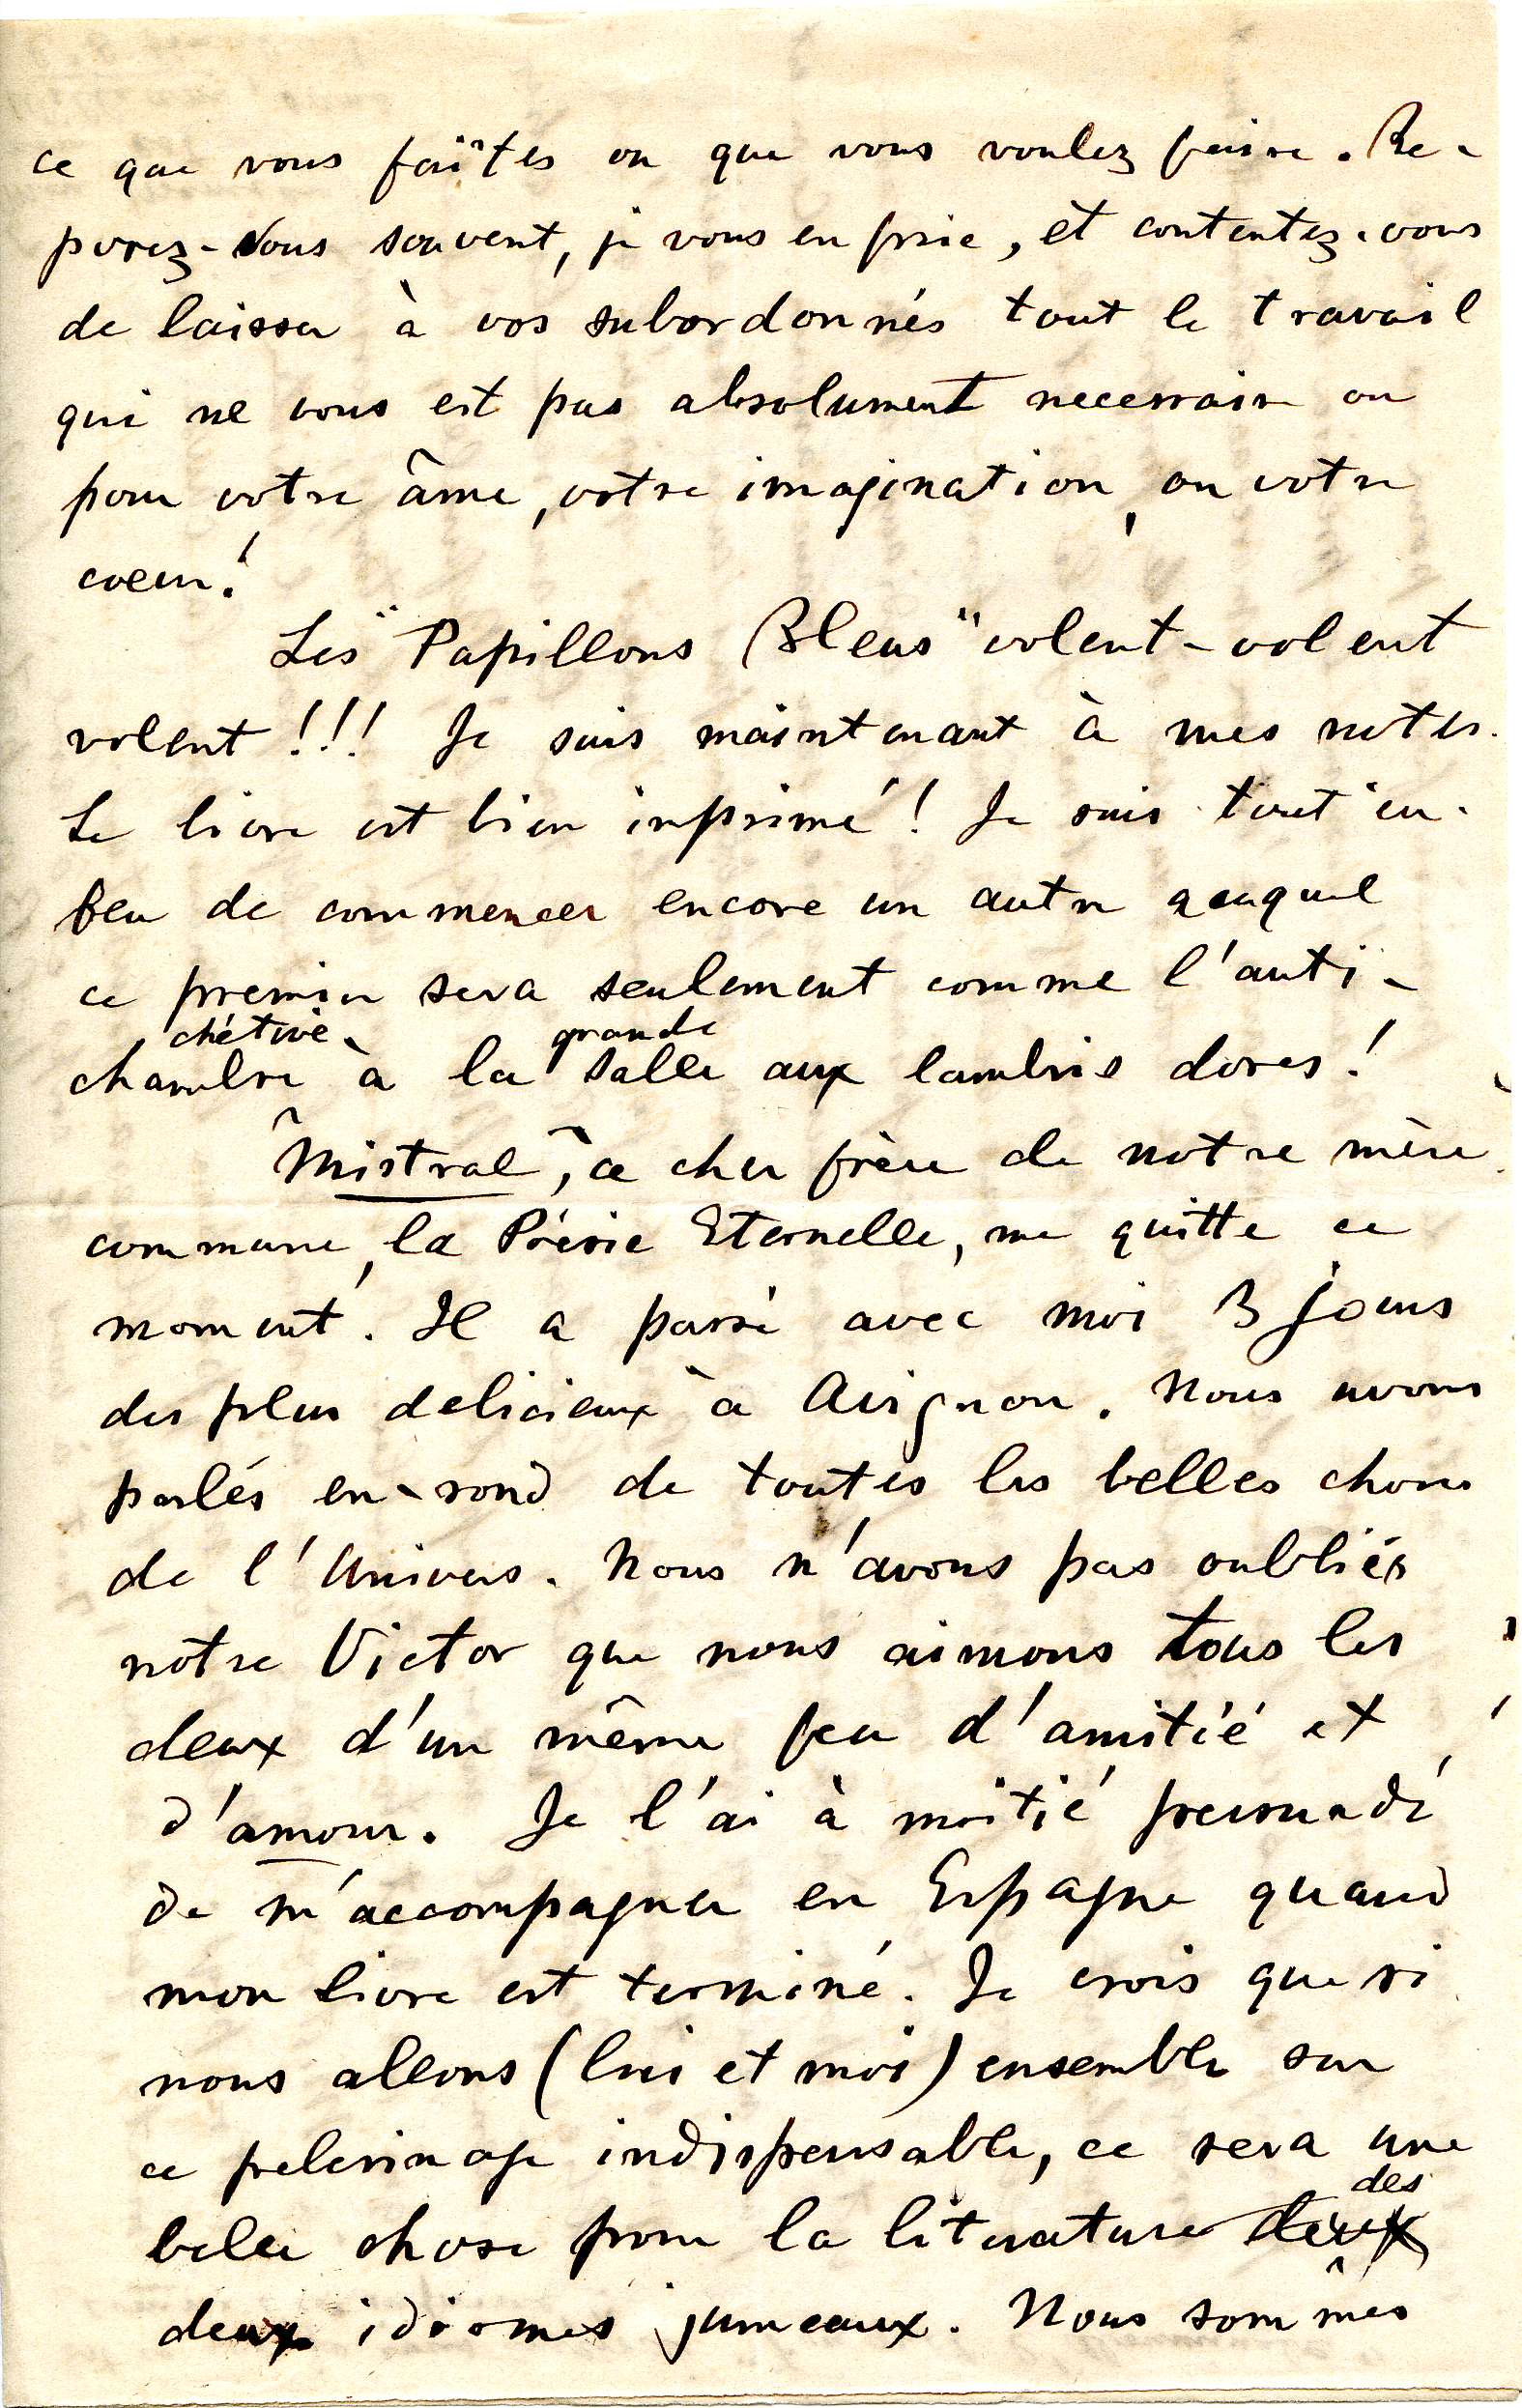 ce que vous faîtes ou que vous voulez faire. Re-
posez-vous souvent, je vous en prie, et contentez-vous
de laisser à vos subordonnés tout le travail
qui ne vous est pas absolument necessaire ou
pour votre âme, votre imagination, ou votre
coeur!
Les "Papillons Bleus" volent-volent
volent!!! Je suis maintenant à mes notes.
Le livre est bien imprimé! Je suis tout en-
feu de commencer encore un autre auquel
ce premier sera seulement comme l'anti-
chétive grande
chambre à la salle aux lambris dores!
Mistral, ce cher frère de notre mère
commune, la Poésie Eternelle, me quitte ce
moment. Il a passé avec moi 3 jours
des plus delicieux à Avignon. Nous avons
parlés en-rond de toutes les belles choses
de l'Univers. Nous n'avons pas oubliés
notre Victor que nous aimons tous les
deux d'un même feu d'amitié et
d'amour. Je l'ai à moitié persuadé
de m'accompagner en Espagne quand
mon livre est terminé. Je crois que si
nous allons (lui et moi) ensemble sur
ce pelerinage indispensable, ce sera une
des
belle chose pour la literature deux
deux idiomes jumeaux. Nous sommes